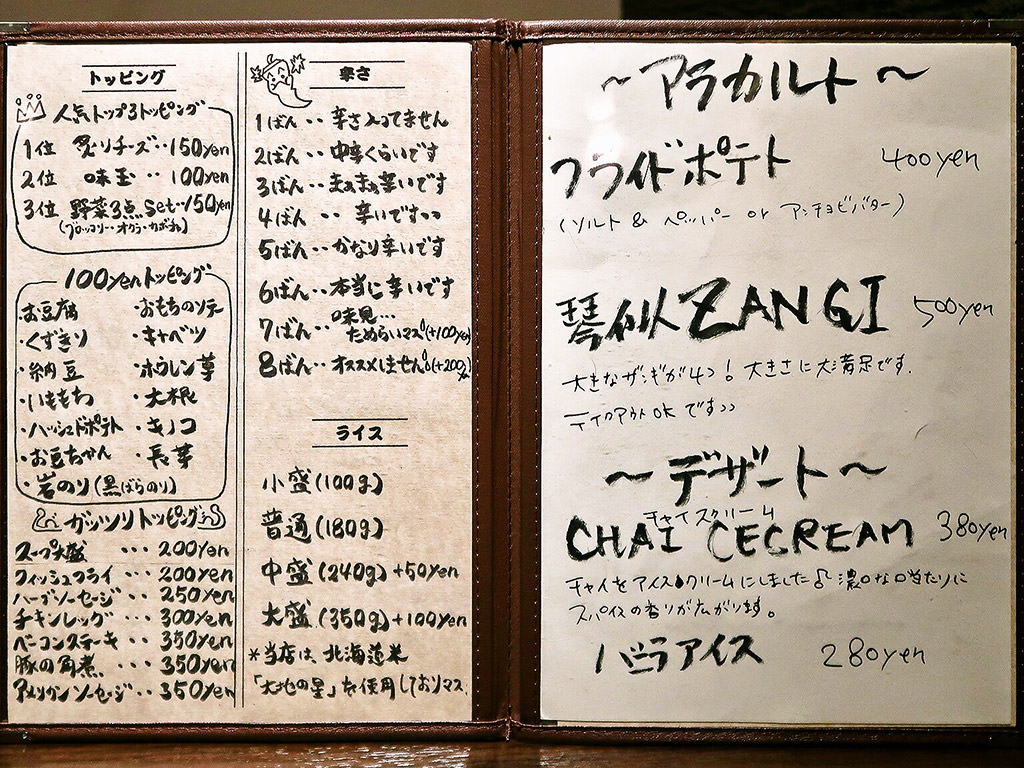 トッピング
人気トップ3トッピング
1位 炙りチーズ・・150yen
2位 味玉・・100yen
3位 野菜3点set・・150yen
(ブロッコリー・オクラ・カボチャ)
100yenトッピング
・お豆腐
・くずきり
・納豆
・いももち
・ハッシュドポテト
・お豆ちゃん
・岩のり(黒ばらのり)
・おもちのソテー
・キャベツ
・ホウレン草
・大根
・キノコ
・長芋
ガッツリトッピング
スープ大盛 ・・・200yen
フィッシュフライ ・・・200yen
ハーブソーセージ・・250yen
チキンレッグ ・・・300yen
ベーコンステーキ・・350yen
豚の角煮 ・・・350yen
アメリカンソーセージ・・350yen
辛さ
1ばん・・辛さ入ってません
2ばん・・中辛くらいです
3ばん・・まぁまぁ辛いです
4ばん・・辛いですっっ
5ばん・・かなり辛いです
6ばん・・本当に辛いです
7ばん・・味見…
ためらいマス(+100yen)
8ばん・・オススメしません(+200yen)
ライス
小盛(100g)
普通(180g)
中盛(240g)+50yen
大盛(350g)+100yen
*当店は、北海道米
「大地の星」を使用しておりマス。
〜アラカルト〜
フライドポテト 400yen
(ソルト & ペッパー or アンチョビバター)
琴似ZANGI 500yen
大きなザンギが4つ!大きさに大満足です。
テイクアウトOKです››
〜デザート〜
チャイアイスクリーム
CHAI ICECREAM 380yen
チャイをアイスクリームにしました♪濃口な口当たりに
スパイスの香りが広がります。
バニラアイス 280yen